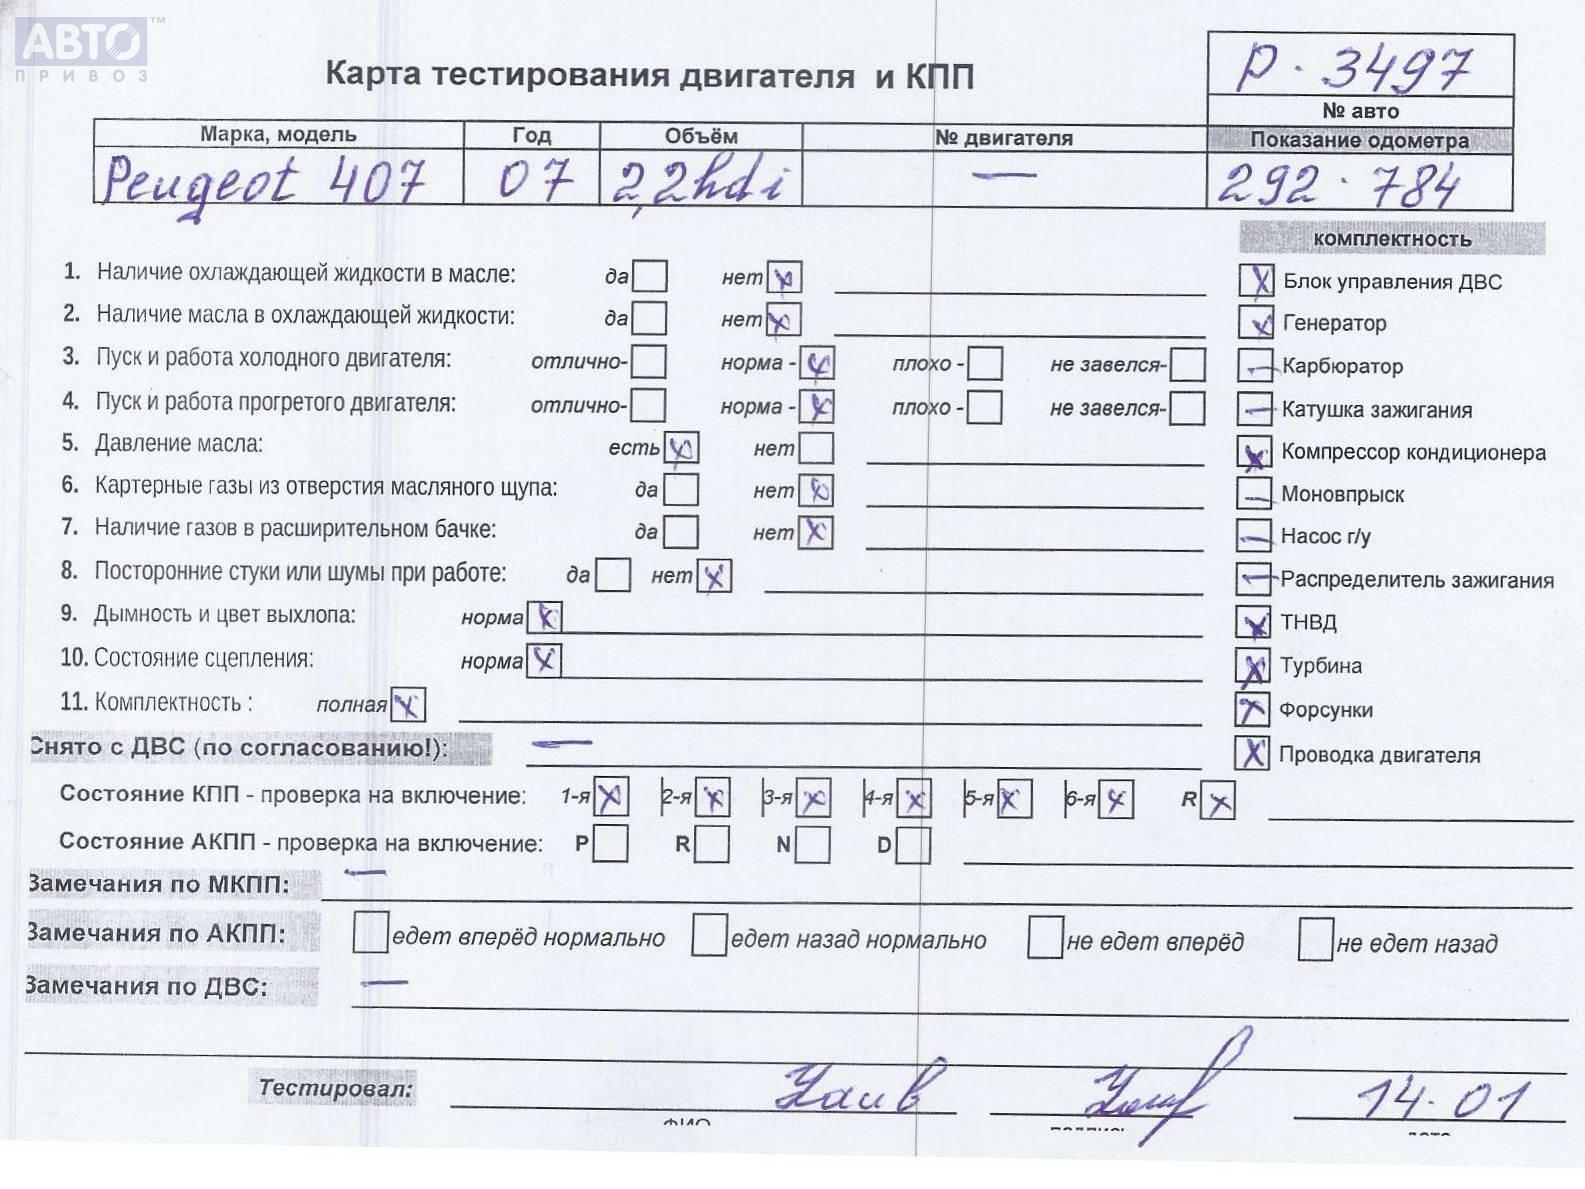 АВТО ™
ПРИВОЗ
Карта тестирования двигателя и КПП
P·3497
№ авто
Марка, модель Год Объём № двигателя Показание одометра
Peugeot 407 07 2,2hdi — 292·784
комплектность
1. Наличие охлаждающей жидкости в масле: да нет x
Блок управления ДВС x
2. Наличие масла в охлаждающей жидкости: да нет x
Генератор x
3. Пуск и работа холодного двигателя: отлично- норма - x плохо - не завелся-
Карбюратор —
4. Пуск и работа прогретого двигателя: отлично- норма - x плохо - не завелся-
Катушка зажигания —
5. Давление масла: есть x нет
Компрессор кондиционера x
6. Картерные газы из отверстия масляного щупа: да нет x
Моновпрыск —
7. Наличие газов в расширительном бачке: да нет x
Насос г/у —
8. Посторонние стуки или шумы при работе: да нет x
Распределитель зажигания —
9. Дымность и цвет выхлопа: норма x
ТНВД x
10. Состояние сцепления: норма x
Турбина x
11. Комплектность : полная x
Форсунки x
Снято с ДВС (по согласованию!): —
Проводка двигателя x
Состояние КПП - проверка на включение: 1-я x 2-я x 3-я x 4-я x 5-я x 6-я x R x
Состояние АКПП - проверка на включение: P R N D
Замечания по МКПП: —
Замечания по АКПП: едет вперёд нормально едет назад нормально не едет вперёд не едет назад
Замечания по ДВС: —
Тестировал: 14·01
ФИО подпись дата